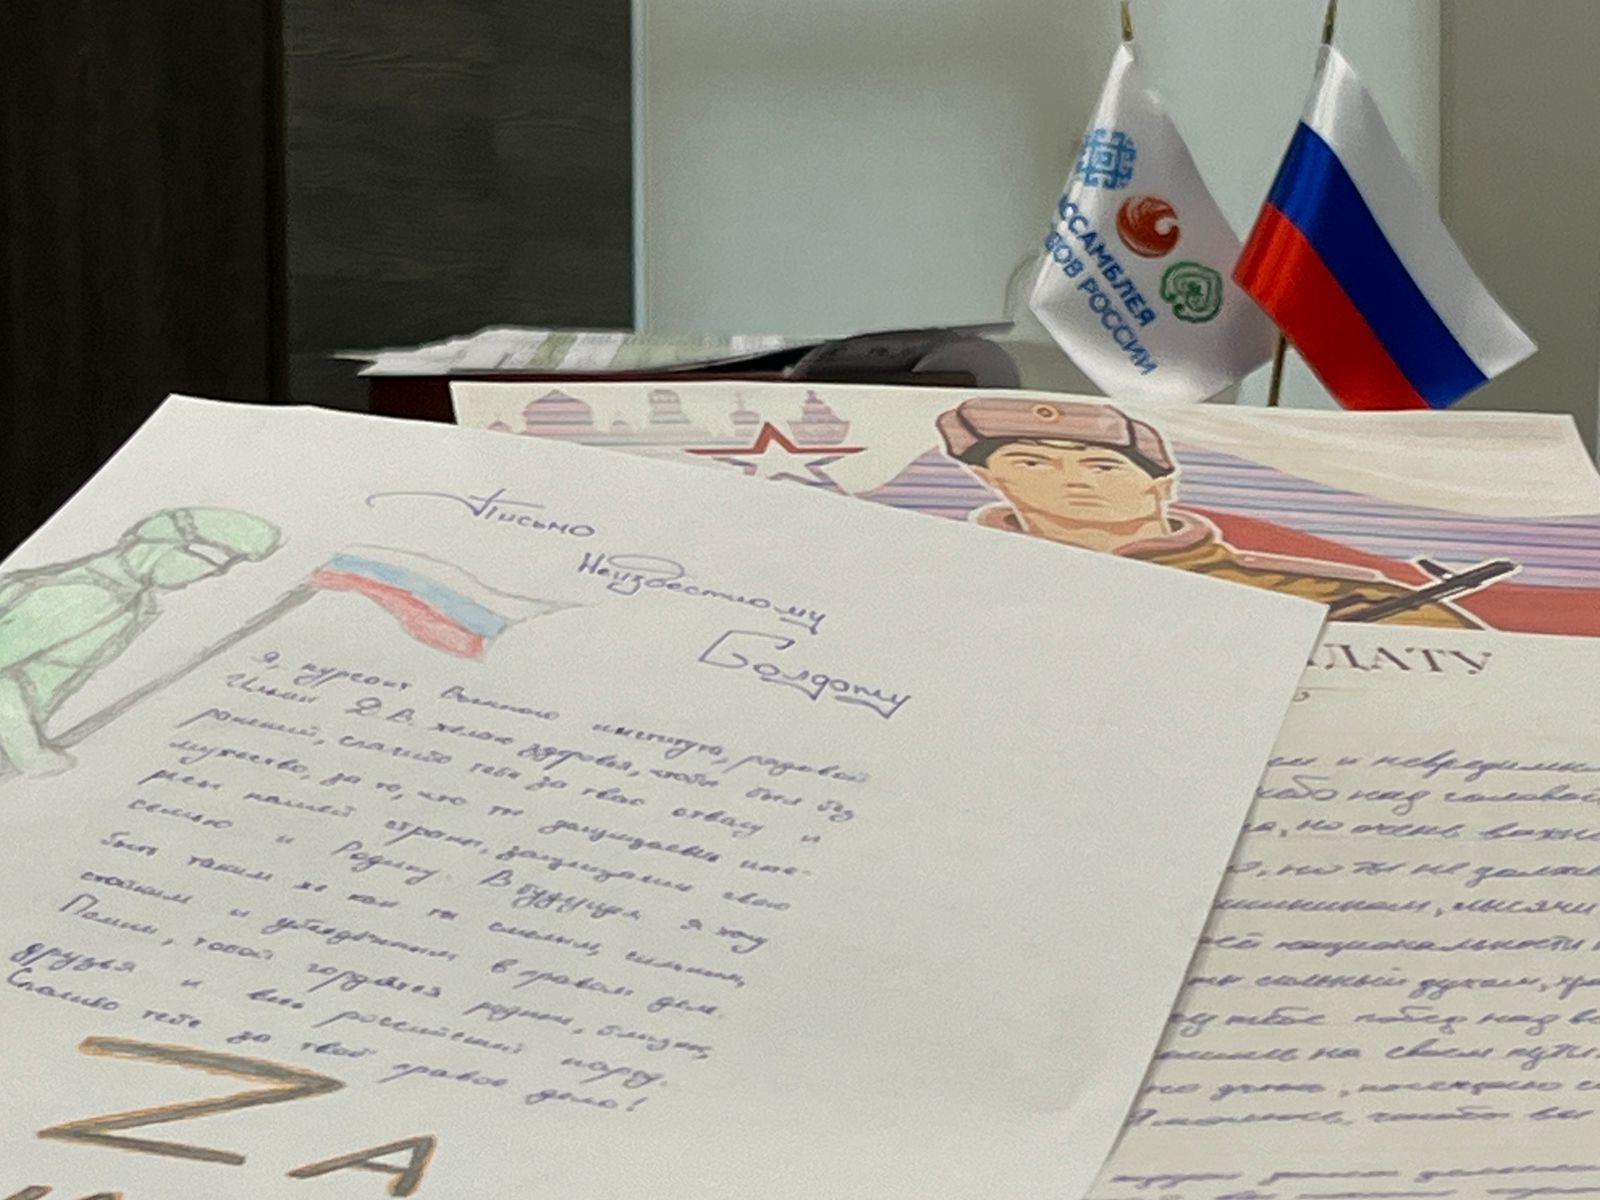 ССАМБЛЕЯ
ОВ РОССИИ
Письмо
Неизвестному
Солдату
Я, курсант Военного института, рядовой
Ильин Д.В. желаю здоровья, чтобы был без
ранений, спасибо тебе за твою отвагу и
мужество, за то, что ты защищаешь инте-
ресы нашей страны, защищаешь свою
семью и Родину. В будущем я хочу
быть таким же как ты смелым, сильным,
стойким и убеждённым в правом деле.
Помни, тобой гордятся родные, близкие,
друзья и весь российский народ.
Спасибо тебе за твоё правое дело!
ZА
ЛДАТУ
и невредимым
небо над головой
но очень важно
но ты не должен
тысячи
национальности
сильный духом,
побед над
на своём пути